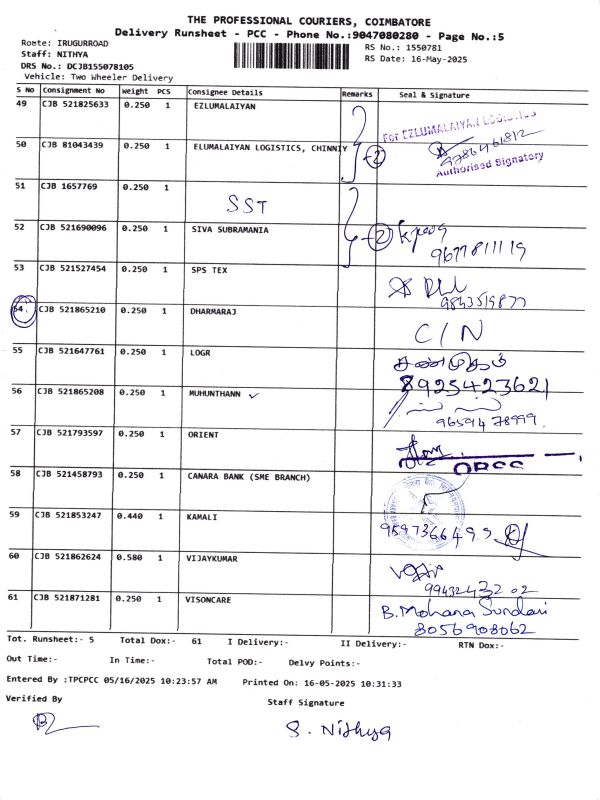 THE PROFESSIONAL COURIERS, COIMBATORE
Delivery Runsheet - PCC - Phone No.:9047080280 - Page No.:5
Route: IRUGURROAD
RS No.: 1550781
Staff: NITHYA
RS Date: 16-May-2025
DRS No.: DCJB155078105
Vehicle: Two Wheeler Delivery
S No Consignment No Weight PCS Consignee Details Remarks Seal & Signature
49 CJB 521825633 0.250 1 EZLUMALAIYAN
For EZLUMALAIYAN LOGISTICS
9786461812
Authorised Signatory
50 CJB 81043439 0.250 1 ELUMALAIYAN LOGISTICS, CHINNIY 2
51 CJB 1657769 0.250 1
SST
52 CJB 521690096 0.250 1 SIVA SUBRAMANIA 2
9677811119
53 CJB 521527454 0.250 1 SPS TEX
9843519877
54 CJB 521865210 0.250 1 DHARMARAJ C/N
55 CJB 521647761 0.250 1 LOGR சண்முகம்
8925423621
56 CJB 521865208 0.250 1 MUHUNTHANN ✓
9659478999.
57 CJB 521793597 0.250 1 ORIENT
58 CJB 521458793 0.250 1 CANARA BANK (SME BRANCH)
59 CJB 521853247 0.440 1 KAMALI
9597366499
60 CJB 521862624 0.580 1 VIJAYKUMAR
9943243202
61 CJB 521871281 0.250 1 VISONCARE B. Mohana Sundari
8056908062
Tot. Runsheet:- 5 Total Dox:- 61 I Delivery:- II Delivery:- RTN Dox:-
Out Time:- In Time:- Total POD:- Delvy Points:-
Entered By :TPCPCC 05/16/2025 10:23:57 AM Printed On: 16-05-2025 10:31:33
Verified By Staff Signature
S. Nithya